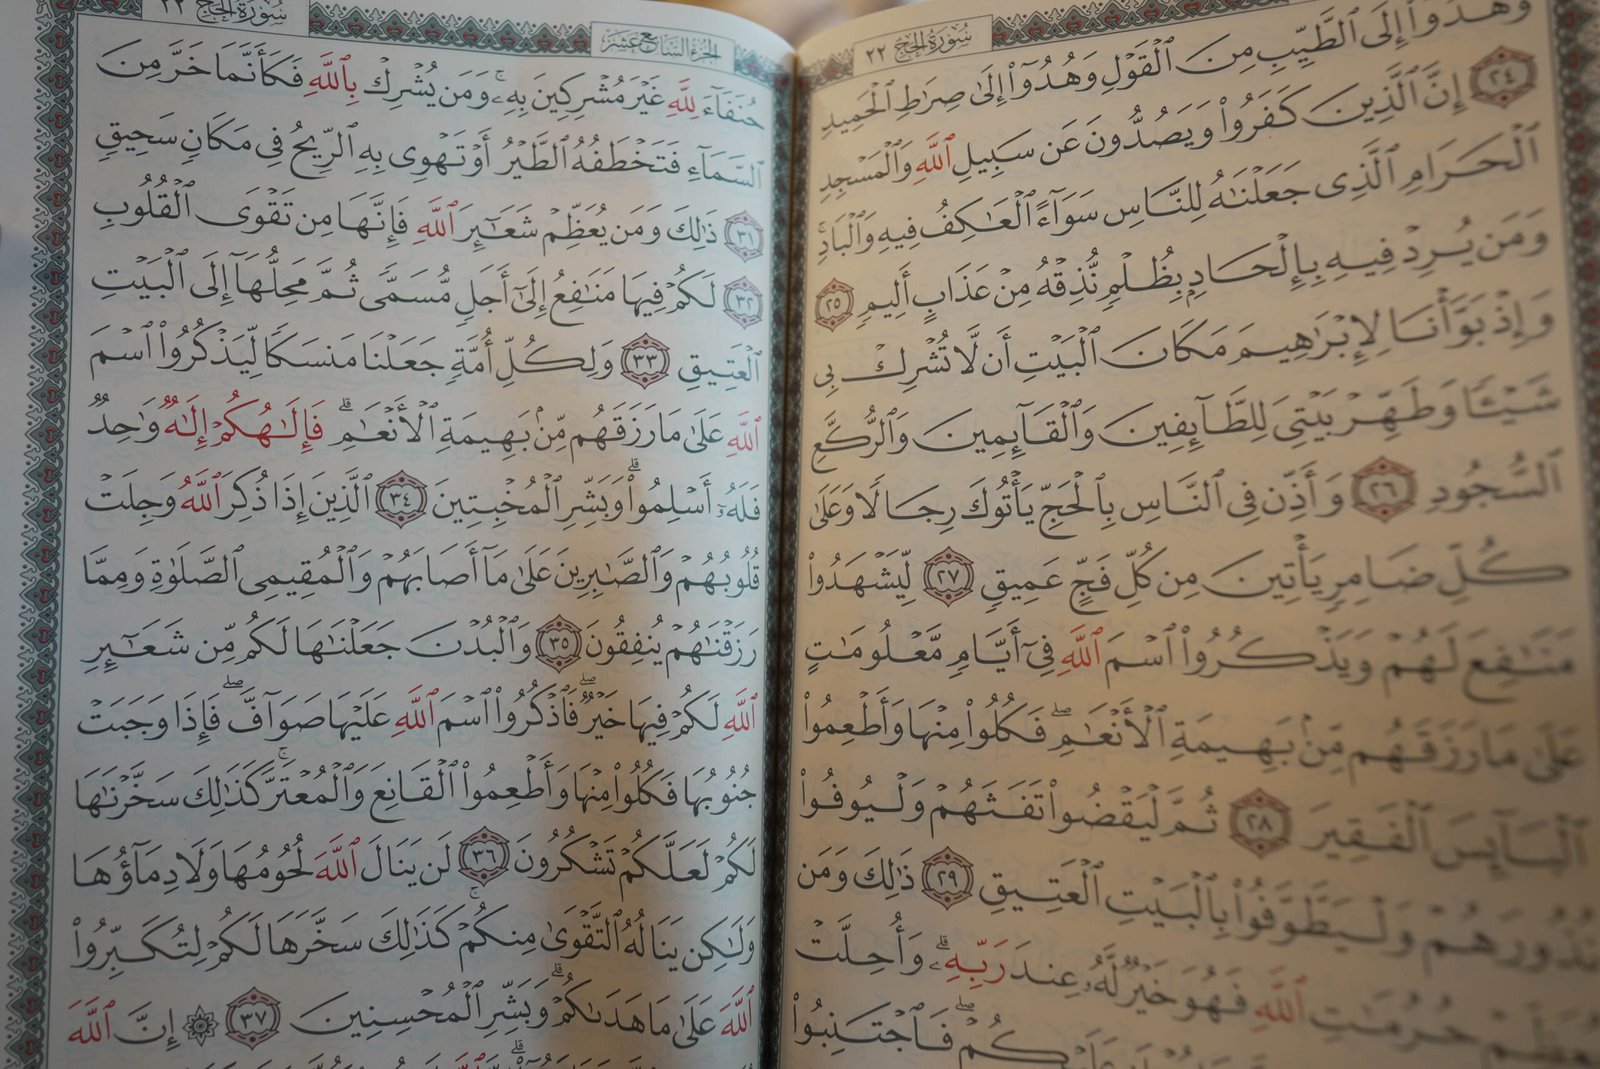 سُورَةُ الحَجِّ ٢٢
وَهُدُوٓا۟ إِلَى ٱلطَّيِّبِ مِنَ ٱلْقَوْلِ وَهُدُوٓا۟ إِلَىٰ صِرَٰطِ ٱلْحَمِيدِ
٢٤ إِنَّ ٱلَّذِينَ كَفَرُوا۟ وَيَصُدُّونَ عَن سَبِيلِ ٱللَّهِ وَٱلْمَسْجِدِ
ٱلْحَرَامِ ٱلَّذِى جَعَلْنَٰهُ لِلنَّاسِ سَوَآءً ٱلْعَٰكِفُ فِيهِ وَٱلْبَادِ ۚ
وَمَن يُرِدْ فِيهِ بِإِلْحَادٍۭ بِظُلْمٍ نُّذِقْهُ مِنْ عَذَابٍ أَلِيمٍ ٢٥
وَإِذْ بَوَّأْنَا لِإِبْرَٰهِيمَ مَكَانَ ٱلْبَيْتِ أَن لَّا تُشْرِكْ بِى
شَيْـًٔا وَطَهِّرْ بَيْتِىَ لِلطَّآئِفِينَ وَٱلْقَآئِمِينَ وَٱلرُّكَّعِ
ٱلسُّجُودِ ٢٦ وَأَذِّن فِى ٱلنَّاسِ بِٱلْحَجِّ يَأْتُوكَ رِجَالًا وَعَلَىٰ
كُلِّ ضَامِرٍ يَأْتِينَ مِن كُلِّ فَجٍّ عَمِيقٍ ٢٧ لِّيَشْهَدُوا۟
مَنَٰفِعَ لَهُمْ وَيَذْكُرُوا۟ ٱسْمَ ٱللَّهِ فِىٓ أَيَّامٍ مَّعْلُومَٰتٍ
عَلَىٰ مَا رَزَقَهُم مِّنۢ بَهِيمَةِ ٱلْأَنْعَٰمِ ۖ فَكُلُوا۟ مِنْهَا وَأَطْعِمُوا۟
ٱلْبَآئِسَ ٱلْفَقِيرَ ٢٨ ثُمَّ لْيَقْضُوا۟ تَفَثَهُمْ وَلْيُوفُوا۟
نُذُورَهُمْ وَلْيَطَّوَّفُوا۟ بِٱلْبَيْتِ ٱلْعَتِيقِ ٢٩ ذَٰلِكَ وَمَن
يُعَظِّمْ حُرُمَٰتِ ٱللَّهِ فَهُوَ خَيْرٌ لَّهُۥ عِندَ رَبِّهِۦ ۗ وَأُحِلَّتْ
عَلَيْكُمْ ۖ فَٱجْتَنِبُوا۟
الجُزْءُ السَّابِعَ عَشَرَ
سُورَةُ الحَجِّ ٢٢
حُنَفَآءَ لِلَّهِ غَيْرَ مُشْرِكِينَ بِهِۦ ۚ وَمَن يُشْرِكْ بِٱللَّهِ فَكَأَنَّمَا خَرَّ مِنَ
ٱلسَّمَآءِ فَتَخْطَفُهُ ٱلطَّيْرُ أَوْ تَهْوِى بِهِ ٱلرِّيحُ فِى مَكَانٍ سَحِيقٍ
٣١ ذَٰلِكَ وَمَن يُعَظِّمْ شَعَٰٓئِرَ ٱللَّهِ فَإِنَّهَا مِن تَقْوَى ٱلْقُلُوبِ
٣٢ لَكُمْ فِيهَا مَنَٰفِعُ إِلَىٰٓ أَجَلٍ مُّسَمًّى ثُمَّ مَحِلُّهَآ إِلَى ٱلْبَيْتِ
ٱلْعَتِيقِ ٣٣ وَلِكُلِّ أُمَّةٍ جَعَلْنَا مَنسَكًا لِّيَذْكُرُوا۟ ٱسْمَ
ٱللَّهِ عَلَىٰ مَا رَزَقَهُم مِّنۢ بَهِيمَةِ ٱلْأَنْعَٰمِ ۗ فَإِلَٰهُكُمْ إِلَٰهٌ وَٰحِدٌ
فَلَهُۥٓ أَسْلِمُوا۟ ۗ وَبَشِّرِ ٱلْمُخْبِتِينَ ٣٤ ٱلَّذِينَ إِذَا ذُكِرَ ٱللَّهُ وَجِلَتْ
قُلُوبُهُمْ وَٱلصَّٰبِرِينَ عَلَىٰ مَآ أَصَابَهُمْ وَٱلْمُقِيمِى ٱلصَّلَوٰةِ وَمِمَّا
رَزَقْنَٰهُمْ يُنفِقُونَ ٣٥ وَٱلْبُدْنَ جَعَلْنَٰهَا لَكُم مِّن شَعَٰٓئِرِ
ٱللَّهِ لَكُمْ فِيهَا خَيْرٌ ۖ فَٱذْكُرُوا۟ ٱسْمَ ٱللَّهِ عَلَيْهَا صَوَآفَّ ۖ فَإِذَا وَجَبَتْ
جُنُوبُهَا فَكُلُوا۟ مِنْهَا وَأَطْعِمُوا۟ ٱلْقَانِعَ وَٱلْمُعْتَرَّ ۚ كَذَٰلِكَ سَخَّرْنَٰهَا
لَكُمْ لَعَلَّكُمْ تَشْكُرُونَ ٣٦ لَن يَنَالَ ٱللَّهَ لُحُومُهَا وَلَا دِمَآؤُهَا
وَلَٰكِن يَنَالُهُ ٱلتَّقْوَىٰ مِنكُمْ ۚ كَذَٰلِكَ سَخَّرَهَا لَكُمْ لِتُكَبِّرُوا۟
ٱللَّهَ عَلَىٰ مَا هَدَىٰكُمْ ۗ وَبَشِّرِ ٱلْمُحْسِنِينَ ٣٧ ۞ إِنَّ ٱللَّهَ